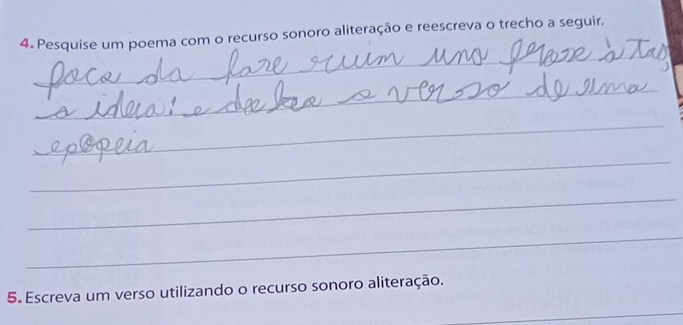 4. Pesquise um poema com o recurso sonoro aliteração e reescreva o trecho a seguir.
poca da faze ruim uno à
a ideia; e o verso de uma
epopeia
5. Escreva um verso utilizando o recurso sonoro aliteração.